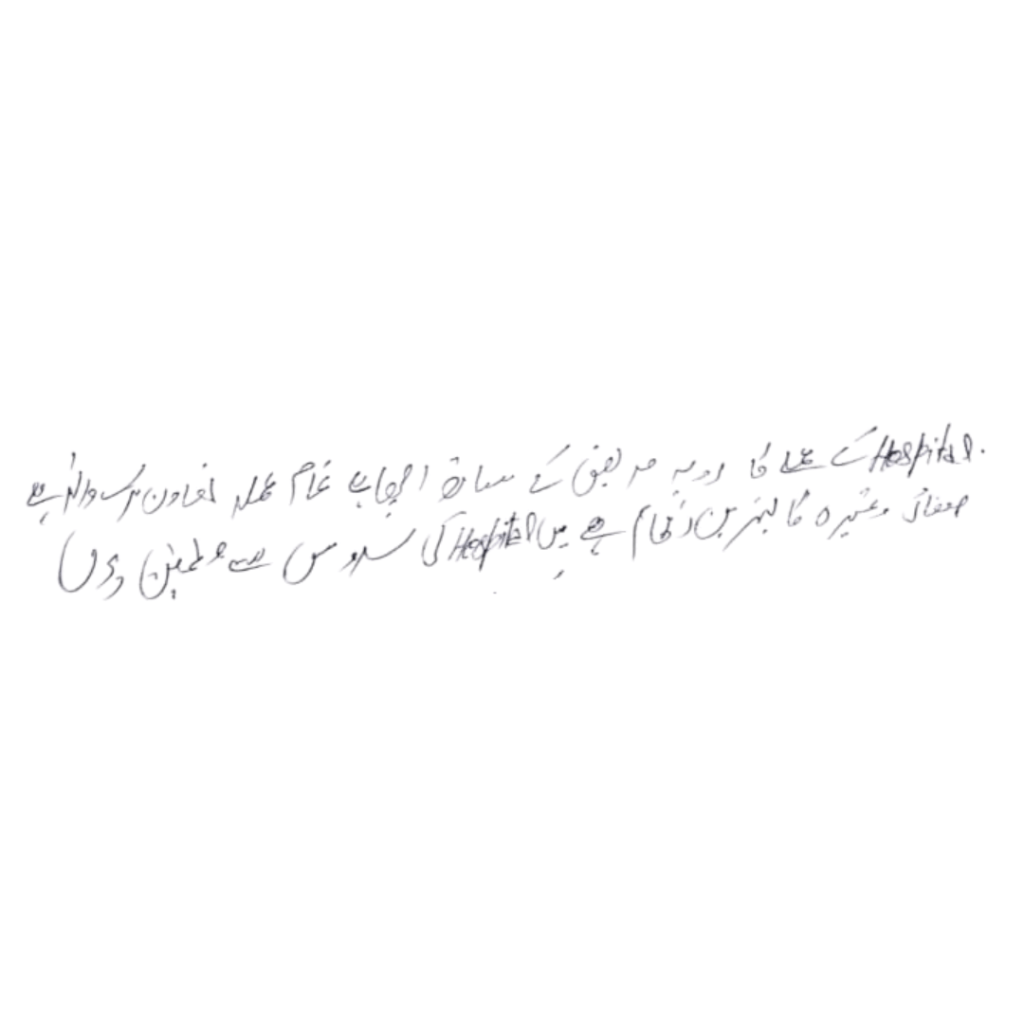 Hospital کے عملے کا رویہ مریض کے ساتھ اچھا ہے تمام عملہ تعاون کرنے والا ہے
صفائی وغیرہ کا بہترین نظام ہے میں Hospital کی سروس سے مطمئن ہوں